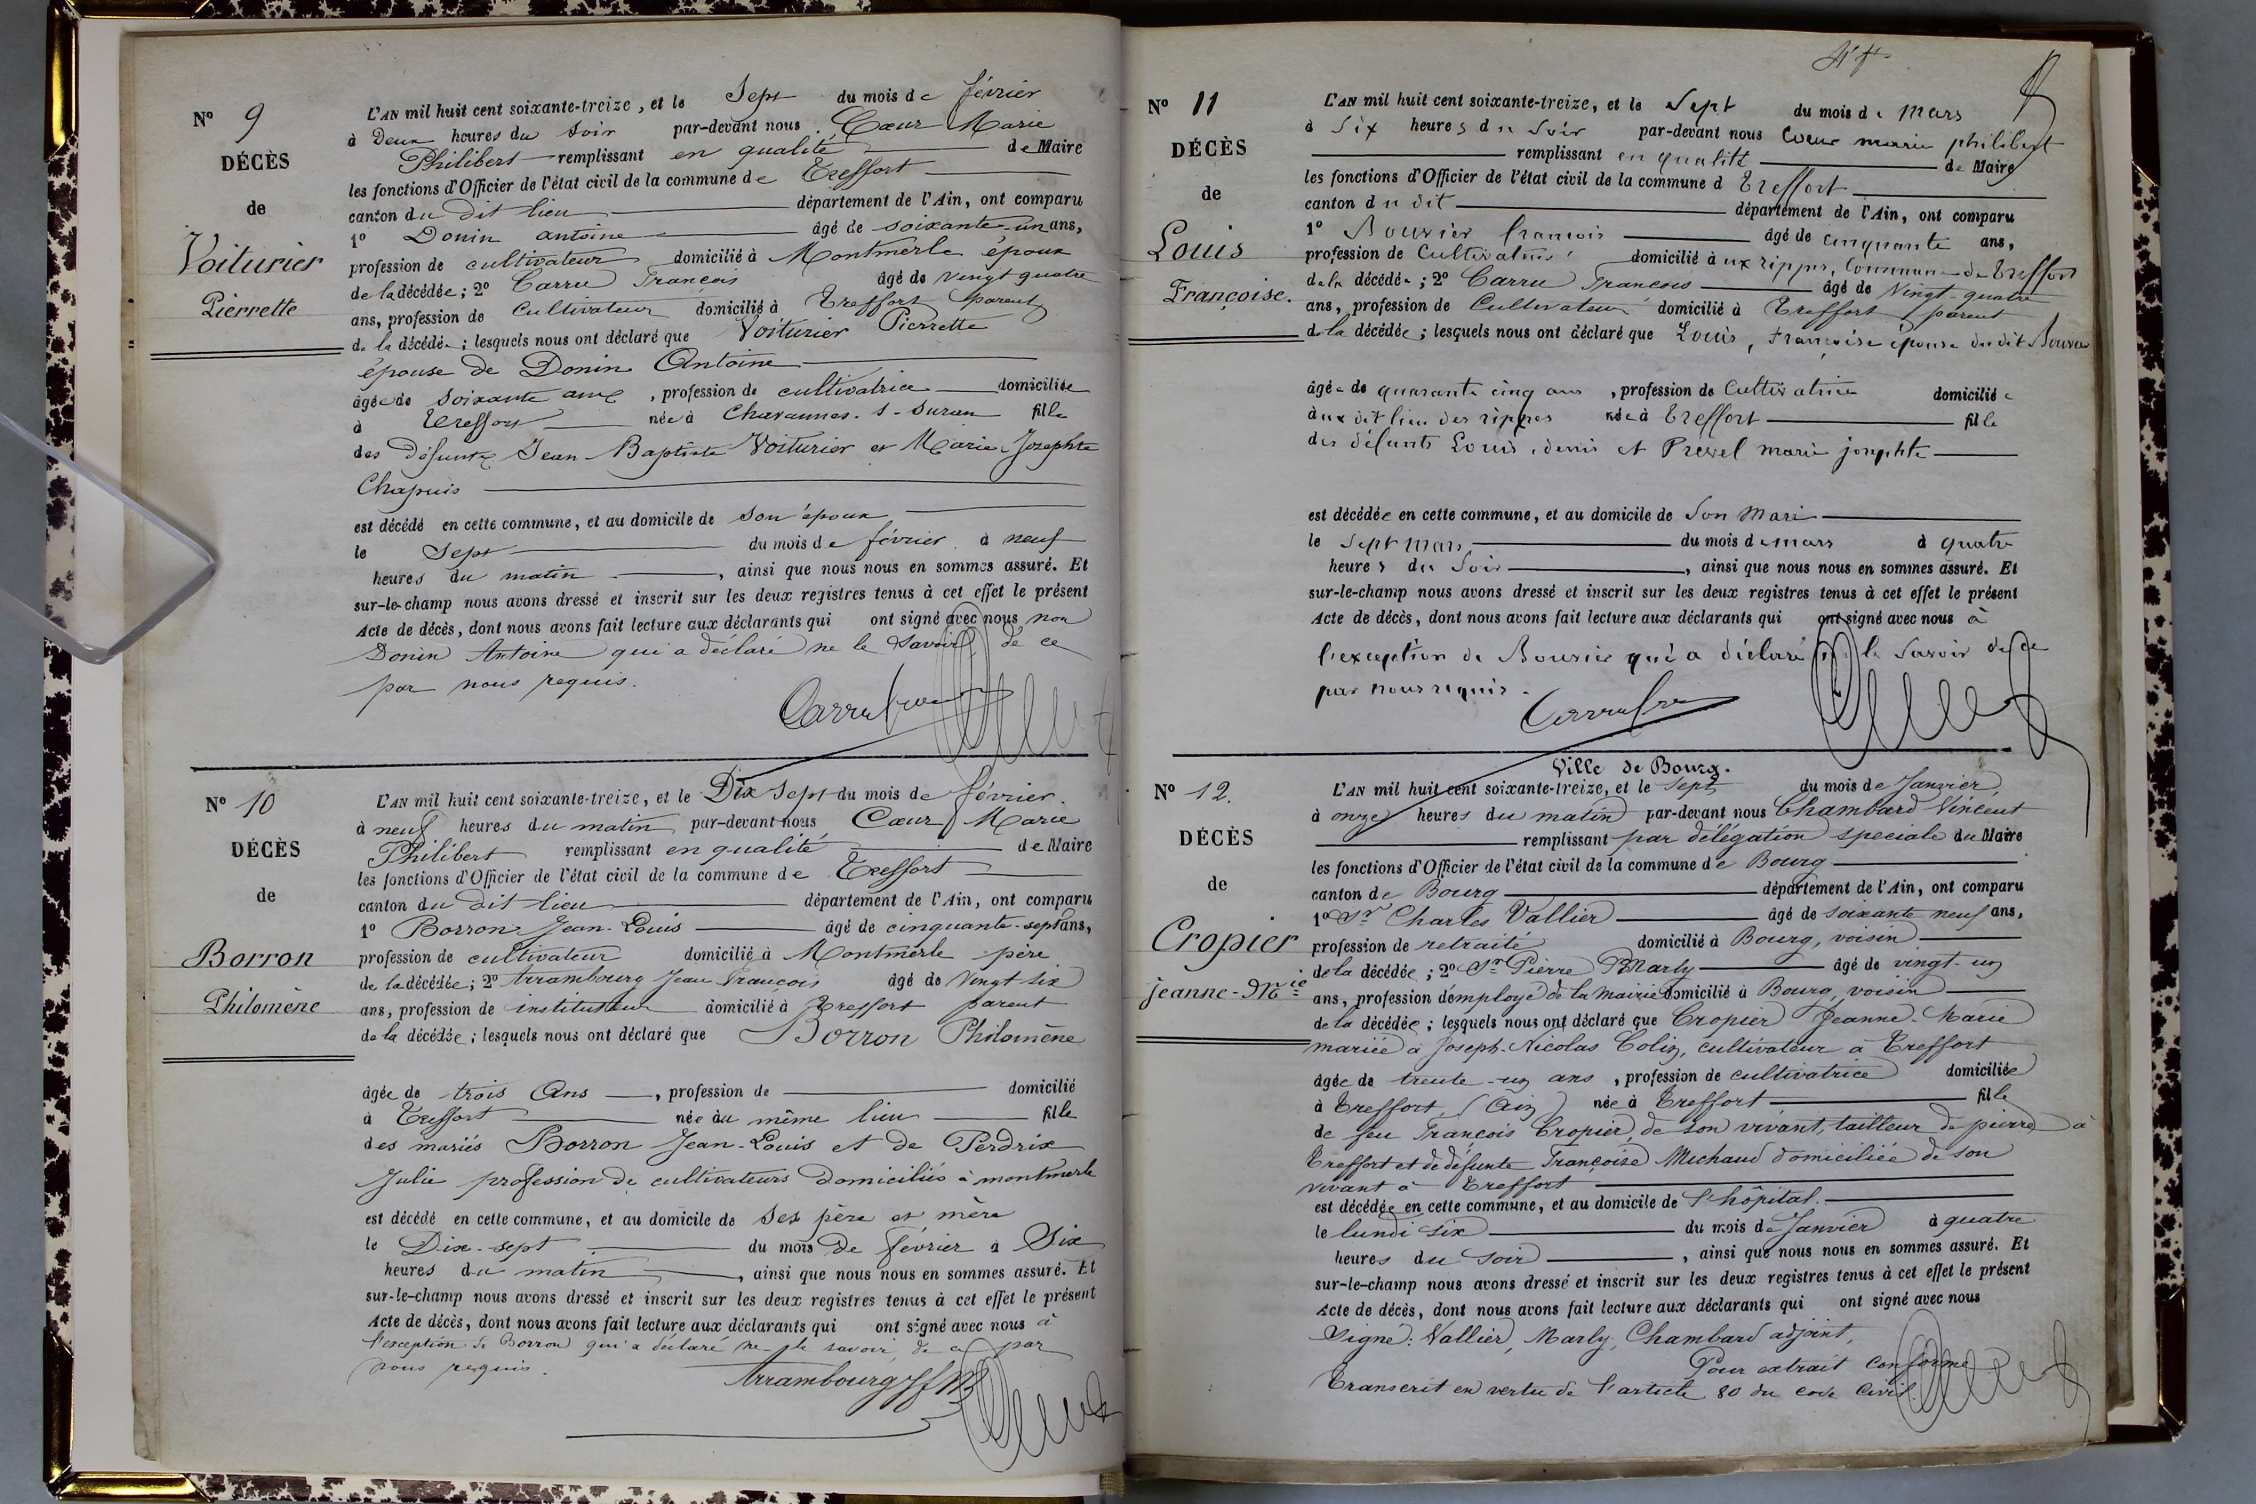 Nº 9
DÉCÈS
de
Voiturier
Pierrette
L'AN mil huit cent soixante-treize, et le Sept du mois de février
à Deux heures du soir par-devant nous Cœur Marie
Philibert remplissant en qualité de Maire
les fonctions d'Officier de l'état civil de la commune de Treffort
canton du dit lieu département de l'Ain, ont comparu
1º Donin antoine âgé de soixante-un ans,
profession de cultivateur domicilié à Montmerle époux
de la décédée; 2º Carru François âgé de vingt quatre
ans, profession de cultivateur domicilié à Treffort parent
de la décédée; lesquels nous ont déclaré que Voiturier Pierrette
épouse de Donin Antoine
âgée de soixante ans, profession de cultivatrice domiciliée
à Treffort née à Chavannes-s-Suran fille
des défunts Jean-Baptiste Voiturier et Marie-Josephte
Chapuis
est décédé en cette commune, et au domicile de son époux
le Sept du mois de février à neuf
heures du matin, ainsi que nous nous en sommes assuré. Et
sur-le-champ nous avons dressé et inscrit sur les deux registres tenus à cet effet le présent
Acte de décès, dont nous avons fait lecture aux déclarants qui ont signé avec nous non
Donin Antoine qui a déclaré ne le savoir de ce
par nous requis.
Nº 10
DÉCÈS
de
Borron
Philomène
L'AN mil huit cent soixante-treize, et le Dix Sept du mois de février.
à neuf heures du matin par-devant nous Cœur Marie
Philibert remplissant en qualité de Maire
les fonctions d'Officier de l'état civil de la commune de Treffort
canton du dit lieu département de l'Ain, ont comparu
1º Borron Jean-Louis âgé de cinquante-sept ans,
profession de cultivateur domicilié à Montmerle père
de la décédée; 2º Arrambourg Jean François âgé de vingt six
ans, profession de instituteur domicilié à Treffort parent
de la décédée; lesquels nous ont déclaré que Borron Philomène
âgée de trois ans, profession de domicilié
à Treffort née au même lieu fille
des mariés Borron Jean-Louis et de Perdrix
Julie profession de cultivateurs domiciliés à montmerle
est décédé en cette commune, et au domicile de ses père et mère
le Dix-sept du mois de février à Six
heures du matin, ainsi que nous nous en sommes assuré. Et
sur-le-champ nous avons dressé et inscrit sur les deux registres tenus à cet effet le présent
Acte de décès, dont nous avons fait lecture aux déclarants qui ont signé avec nous à
l'exception de Borron qui a déclaré ne le savoir, de ce par
nous requis.
Arrambourg Jf
Nº 11
DÉCÈS
de
Louis
Françoise.
L'AN mil huit cent soixante-treize, et le Sept du mois de Mars
à Six heures du Soir par-devant nous Cœur marie philibert
remplissant en qualité de Maire
les fonctions d'Officier de l'état civil de la commune d Treffort
canton du dit département de l'Ain, ont comparu
1º Bouvier francois âgé de cinquante ans,
profession de Cultivateur domicilié à ux rippes, Commune de Treffort
de la décédée; 2º Carru François âgé de Vingt-quatre
ans, profession de Cultivateur domicilié à Treffort parent
de la décédée; lesquels nous ont déclaré que Louis, françoise épouse du dit Bouvier
âgée de quarante cinq ans, profession de Cultivatrice domicilié e
à ux dit lieu des rippes née à Treffort fille
des défunts Louis, denis et Prevel marie josephte
est décédée en cette commune, et au domicile de Son Mari
le Sept mars du mois de mars à quatre
heures du Soir, ainsi que nous nous en sommes assuré. Et
sur-le-champ nous avons dressé et inscrit sur les deux registres tenus à cet effet le présent
Acte de décès, dont nous avons fait lecture aux déclarants qui ont signé avec nous à
l'exception de Bouvier qui a déclaré ne le savoir de ce
par nous requis.
Nº 12.
DÉCÈS
de
Cropier
jeanne-Mie
Ville de Bourg.
L'AN mil huit cent soixante-treize, et le sept du mois de Janvier,
à onze heures du matin par-devant nous Chambard Vincent
remplissant par délégation speciale du Maire
les fonctions d'Officier de l'état civil de la commune de Bourg
canton de Bourg département de l'Ain, ont comparu
1º Sr Charles Vallier âgé de soixante neuf ans,
profession de retraité domicilié à Bourg, voisin
de la décédée; 2º Sr Pierre Marly âgé de vingt-un
ans, profession d'employé de la mairie domicilié à Bourg, voisin
de la décédée; lesquels nous ont déclaré que Cropier Jeanne-Marie
mariée à Joseph-Nicolas Colin, cultivateur à Treffort
âgée de trente-un ans, profession de cultivatrice domiciliée
à Treffort, (Ain) née à Treffort fille
de feu François Cropier, de son vivant, tailleur de pierre à
Treffort et de défunte Françoise Michaud domiciliée de son
vivant à Treffort
est décédée en cette commune, et au domicile de l'hôpital.
le lundi six du mois de Janvier à quatre
heures du soir, ainsi que nous nous en sommes assuré. Et
sur-le-champ nous avons dressé et inscrit sur les deux registres tenus à cet effet le présent
Acte de décès, dont nous avons fait lecture aux déclarants qui ont signé avec nous
Signé: Vallier, Marly, Chambard adjoint,
Pour extrait conforme
Transcrit en vertu de l'article 80 du code Civil.